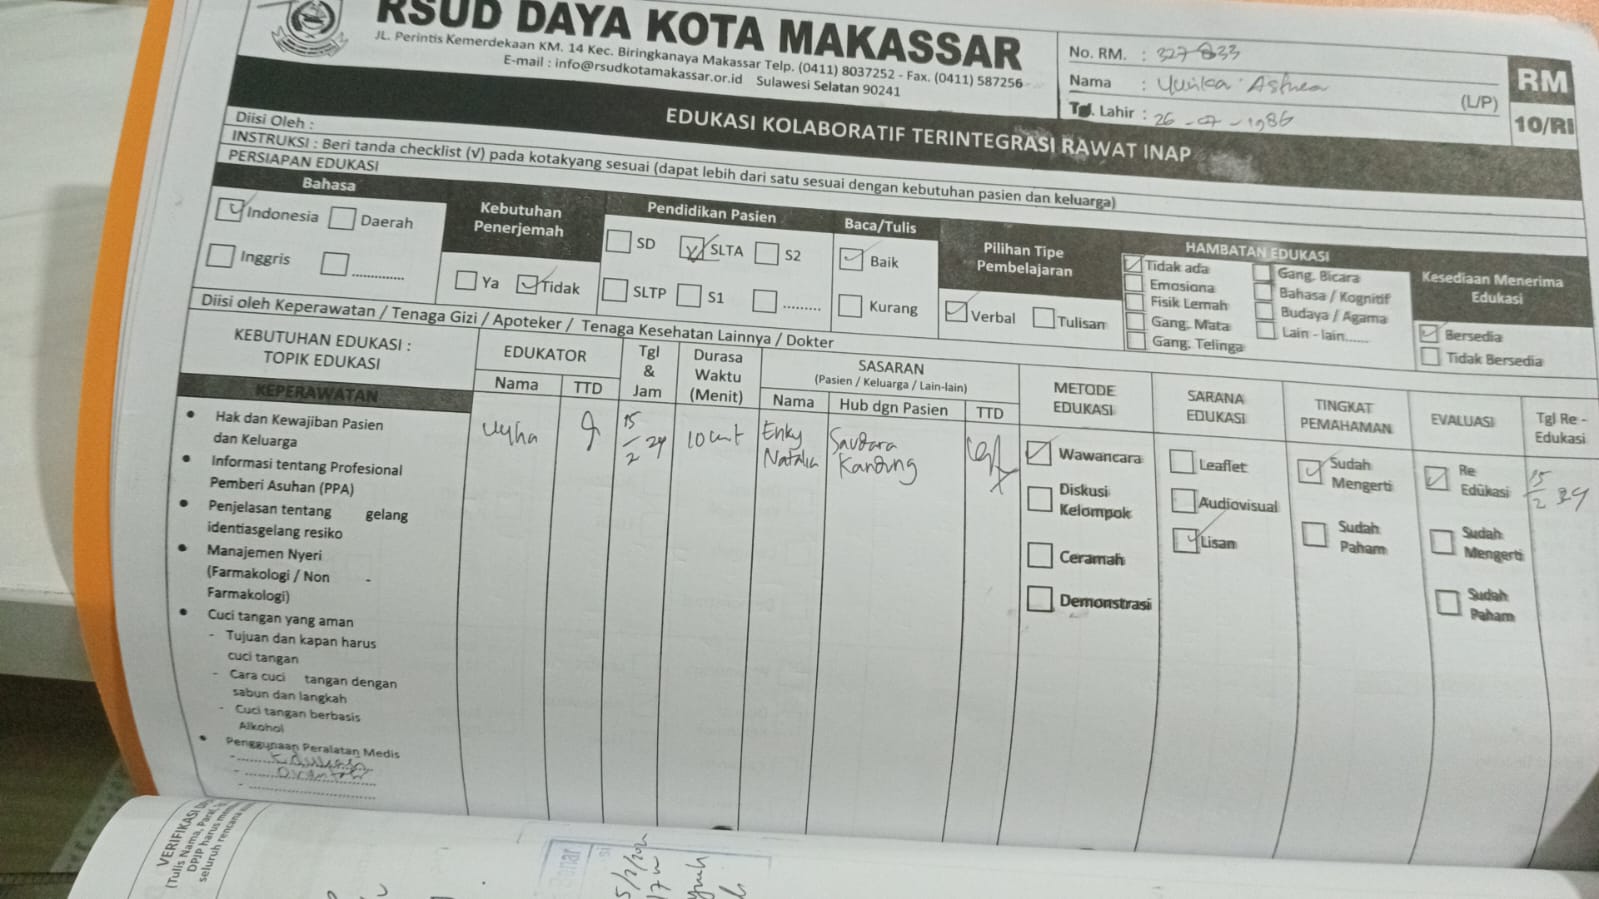 RSUD DAYA KOTA MAKASSAR
JL. Perintis Kemerdekaan KM. 14 Kec. Biringkanaya Makassar Telp. (0411) 8037252 - Fax. (0411) 587256
E-mail : info@rsudkotamakassar.or.id Sulawesi Selatan 90241
No. RM. : 327833
Nama :
(L/P)
Tgl. Lahir : 26 - 07 - 1986
RM
10/RI
EDUKASI KOLABORATIF TERINTEGRASI RAWAT INAP
Diisi Oleh :
INSTRUKSI : Beri tanda checklist (√) pada kotakyang sesuai (dapat lebih dari satu sesuai dengan kebutuhan pasien dan keluarga)
PERSIAPAN EDUKASI
Bahasa
Indonesia Daerah
Inggris ..............
Kebutuhan
Penerjemah
Ya Tidak
Pendidikan Pasien
SD SLTA S2
SLTP S1 .........
Baca/Tulis
Baik
Kurang
Pilihan Tipe
Pembelajaran
Verbal Tulisan
HAMBATAN EDUKASI
Tidak ada Gang. Bicara
Emosiona Bahasa / Kognitif
Fisik Lemah Budaya / Agama
Gang. Mata Lain - lain......
Gang. Telinga
Kesediaan Menerima
Edukasi
Bersedia
Tidak Bersedia
Diisi oleh Keperawatan / Tenaga Gizi / Apoteker / Tenaga Kesehatan Lainnya / Dokter
KEBUTUHAN EDUKASI :
TOPIK EDUKASI
EDUKATOR
Nama TTD
Tgl
&
Jam
Durasa
Waktu
(Menit)
SASARAN
(Pasien / Keluarga / Lain-lain)
Nama Hub dgn Pasien TTD
METODE
EDUKASI
SARANA
EDUKASI
TINGKAT
PEMAHAMAN
EVALUASI
Tgl Re -
Edukasi
KEPERAWATAN
• Hak dan Kewajiban Pasien
dan Keluarga
• Informasi tentang Profesional
Pemberi Asuhan (PPA)
• Penjelasan tentang gelang
identiasgelang resiko
• Manajemen Nyeri
(Farmakologi / Non -
Farmakologi)
• Cuci tangan yang aman
- Tujuan dan kapan harus
cuci tangan
- Cara cuci tangan dengan
sabun dan langkah
- Cuci tangan berbasis
Alkohol
• Penggunaan Peralatan Medis
15/2 24
10 mnt
Enky
Natalia
Saudara
Kandung
Wawancara
Diskusi
Kelompok
Ceramah
Demonstrasi
Leaflet
Audiovisual
Lisan
Sudah
Mengerti
Sudah
Paham
Re
Edukasi
Sudah
Mengerti
Sudah
Paham
15/2 24
VERIFIKASI
(Tulis Nama, Paraf,
DPJP harus
seluruh rencana